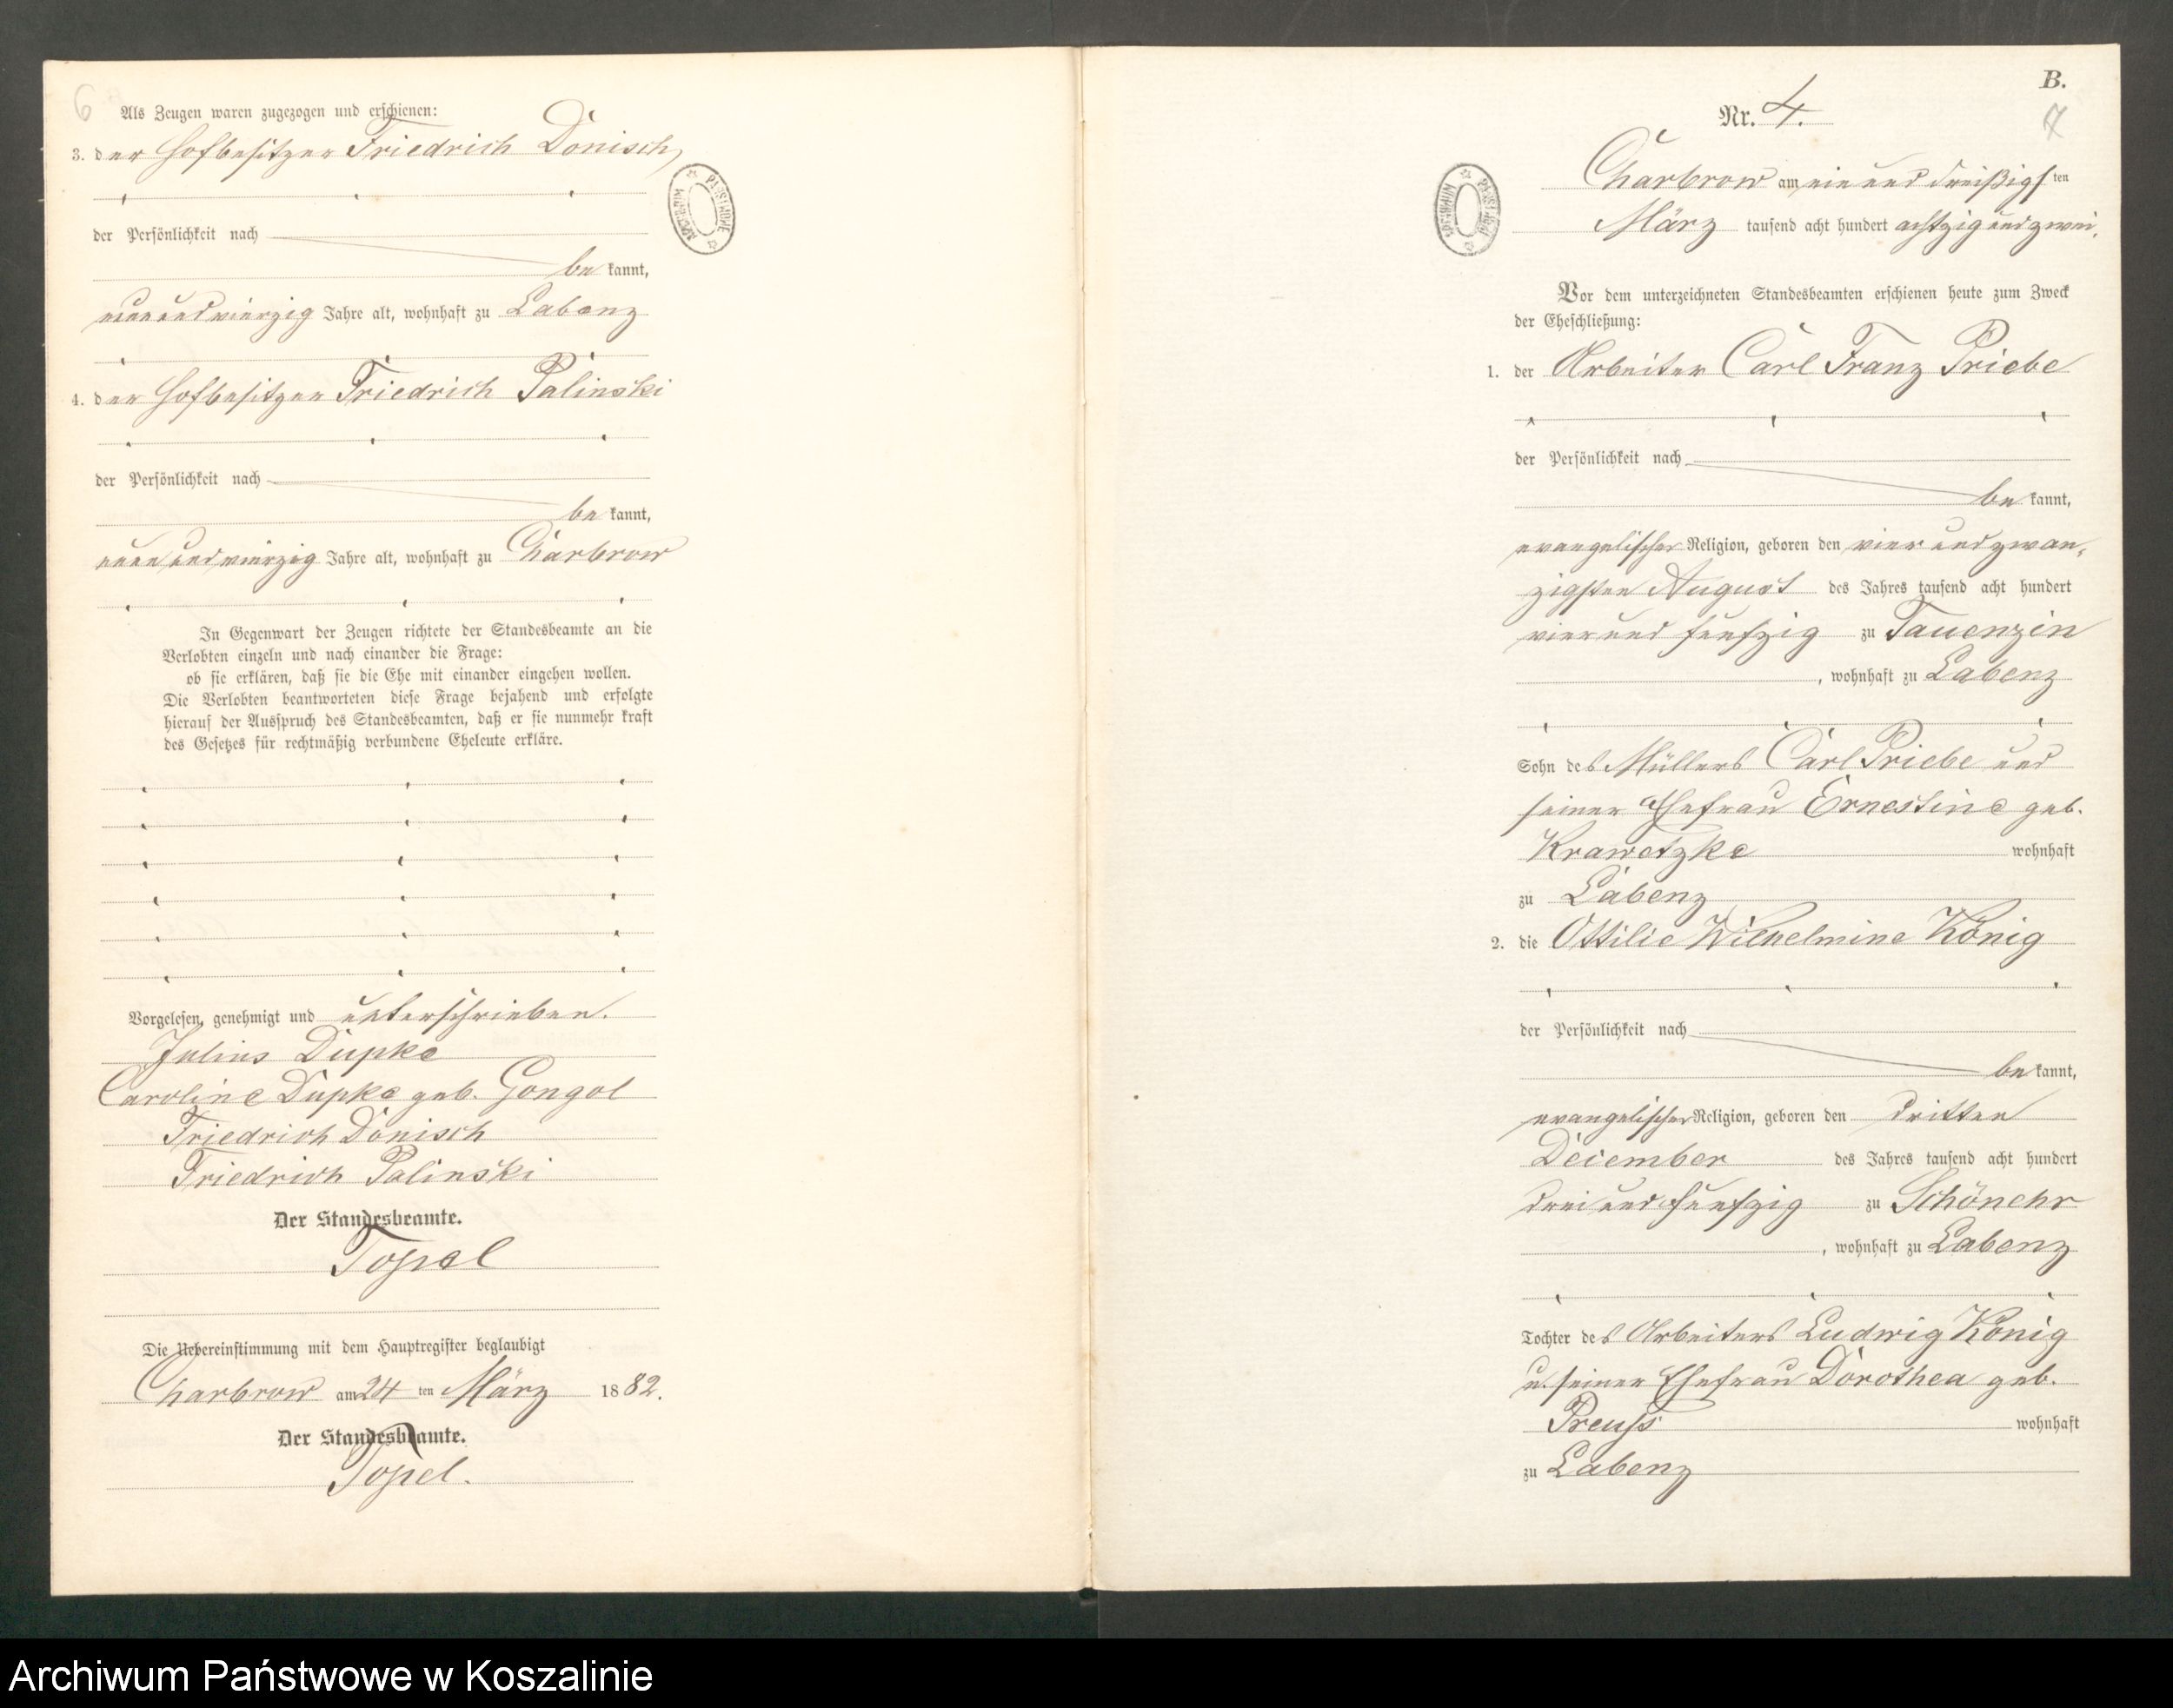 6
Als Zeugen waren zugezogen und erschienen:
3. der Hofbesitzer Friedrich Dönisch,
der Persönlichkeit nach
be kannt,
neun und vierzig Jahre alt, wohnhaft zu Labenz
4. der Hofbesitzer Friedrich Palinski
der Persönlichkeit nach
be kannt,
neun und vierzig Jahre alt, wohnhaft zu Charbrow
In Gegenwart der Zeugen richtete der Standesbeamte an die
Verlobten einzeln und nach einander die Frage:
ob sie erklären, daß sie die Ehe mit einander eingehen wollen.
Die Verlobten beantworteten diese Frage bejahend und erfolgte
hierauf der Ausspruch des Standesbeamten, daß er sie nunmehr kraft
des Gesetzes für rechtmäßig verbundene Eheleute erkläre.
Vorgelesen, genehmigt und unterschrieben.
Julius Dupke
Caroline Dupke geb. Gongol
Friedrich Dönisch
Friedrich Palinski
Der Standesbeamte.
Topel
Die Uebereinstimmung mit dem Hauptregister beglaubigt
Charbrow am 24 ten März 1882.
Der Standesbeamte.
Topel.
ARCHIWUM PAŃSTWOWE
B.
7
Nr. 4.
ARCHIWUM PAŃSTWOWE
Charbrow am ein und dreißigsten
März tausend acht hundert achtzig und zwei.
Vor dem unterzeichneten Standesbeamten erschienen heute zum Zweck
der Eheschließung:
1. der Arbeiter Carl Franz Priebe
der Persönlichkeit nach
be kannt,
evangelischer Religion, geboren den vier und zwan-
zigsten August des Jahres tausend acht hundert
vier und funfzig zu Tauenzin
, wohnhaft zu Labenz
Sohn des Müllers Carl Priebe und
seiner Ehefrau Ernestine geb.
Krawetzke wohnhaft
zu Labenz
2. die Ottilie Wilhelmine König
der Persönlichkeit nach
be kannt,
evangelischer Religion, geboren den dritten
December des Jahres tausend acht hundert
drei und funfzig zu Schönehr
, wohnhaft zu Labenz
Tochter des Arbeiters Ludwig König
u. seiner Ehefrau Dorothea geb.
Preuss wohnhaft
zu Labenz
Archiwum Państwowe w Koszalinie